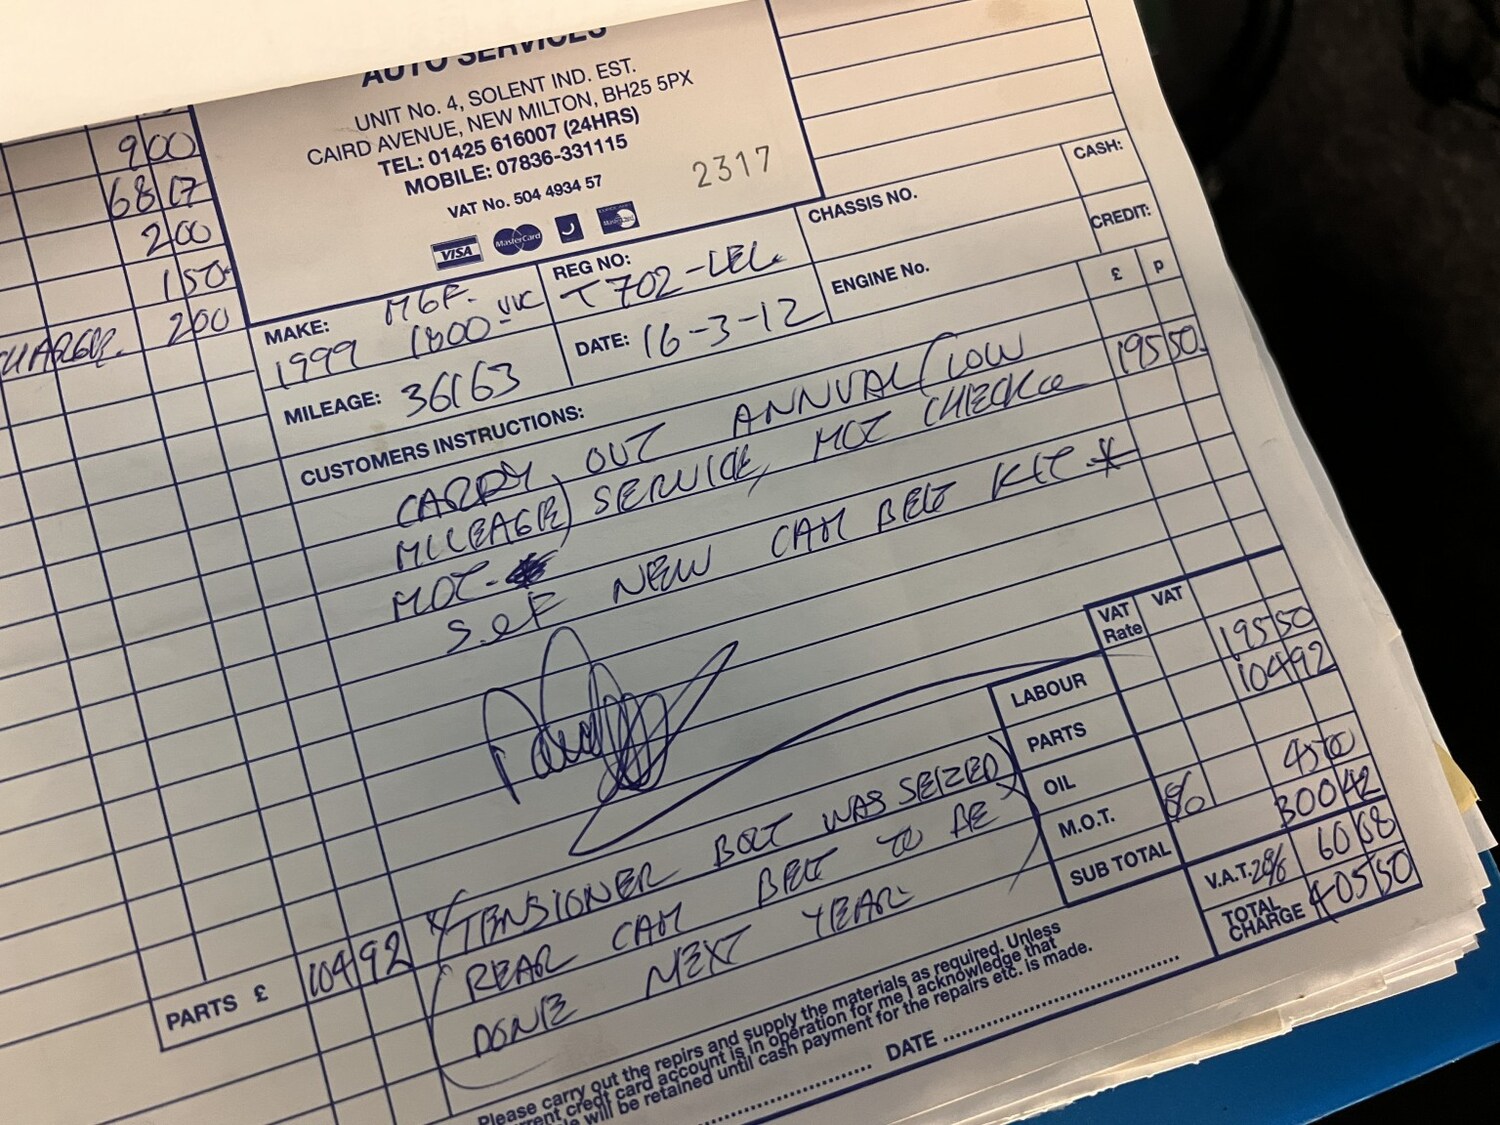 AUTO SERVICES
UNIT No. 4, SOLENT IND. EST.
CAIRD AVENUE, NEW MILTON, BH25 5PX
TEL: 01425 616007 (24HRS)
MOBILE: 07836-331115
VAT No. 504 4934 57
2317
VISA MasterCard MasterCard
9 00
68 17
2 00
1 50
CHARGE. 2 00
PARTS £ 104 92
MAKE: MGF.
1999 1800 VVC
REG NO: T702-LEL.
MILEAGE: 36163
DATE: 16-3-12
CHASSIS NO.
ENGINE No.
CASH:
CREDIT:
£ p
CUSTOMERS INSTRUCTIONS:
CARRY OUT ANNUAL (LOW 195 50
MILEAGE) SERVICE, MOT CHECK &
MOT.
S & F NEW CAM BELT KIT *
* TENSIONER BOLT WAS SEIZED
(REAR CAM BELT TO BE
DONE NEXT YEAR
VAT Rate VAT
LABOUR 195 50
PARTS 104 92
OIL
M.O.T. 0% 45 00
SUB TOTAL 300 42
V.A.T. 20% 60 08
TOTAL CHARGE 405 50
Please carry out the repirs and supply the materials as required. Unless
rrent credt card account is in operation for me I acknowledge that
le will be retained until cash payment for the repairs etc. is made.
DATE